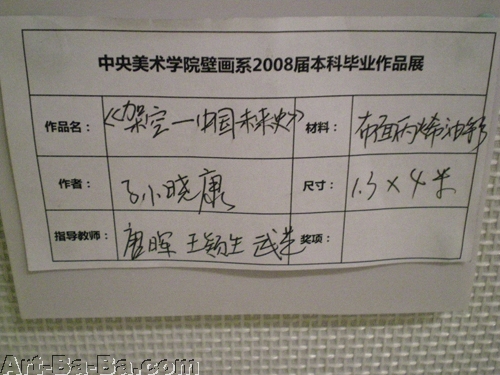 中央美术学院壁画系2008届本科毕业作品展
作品名：《架空—中国未来史》 材料： 布面丙烯油彩
作者： 孙晓康 尺寸： 1.3×4米
指导教师： 唐晖 王颖生 武艺 奖项：
Art-Ba-Ba.com